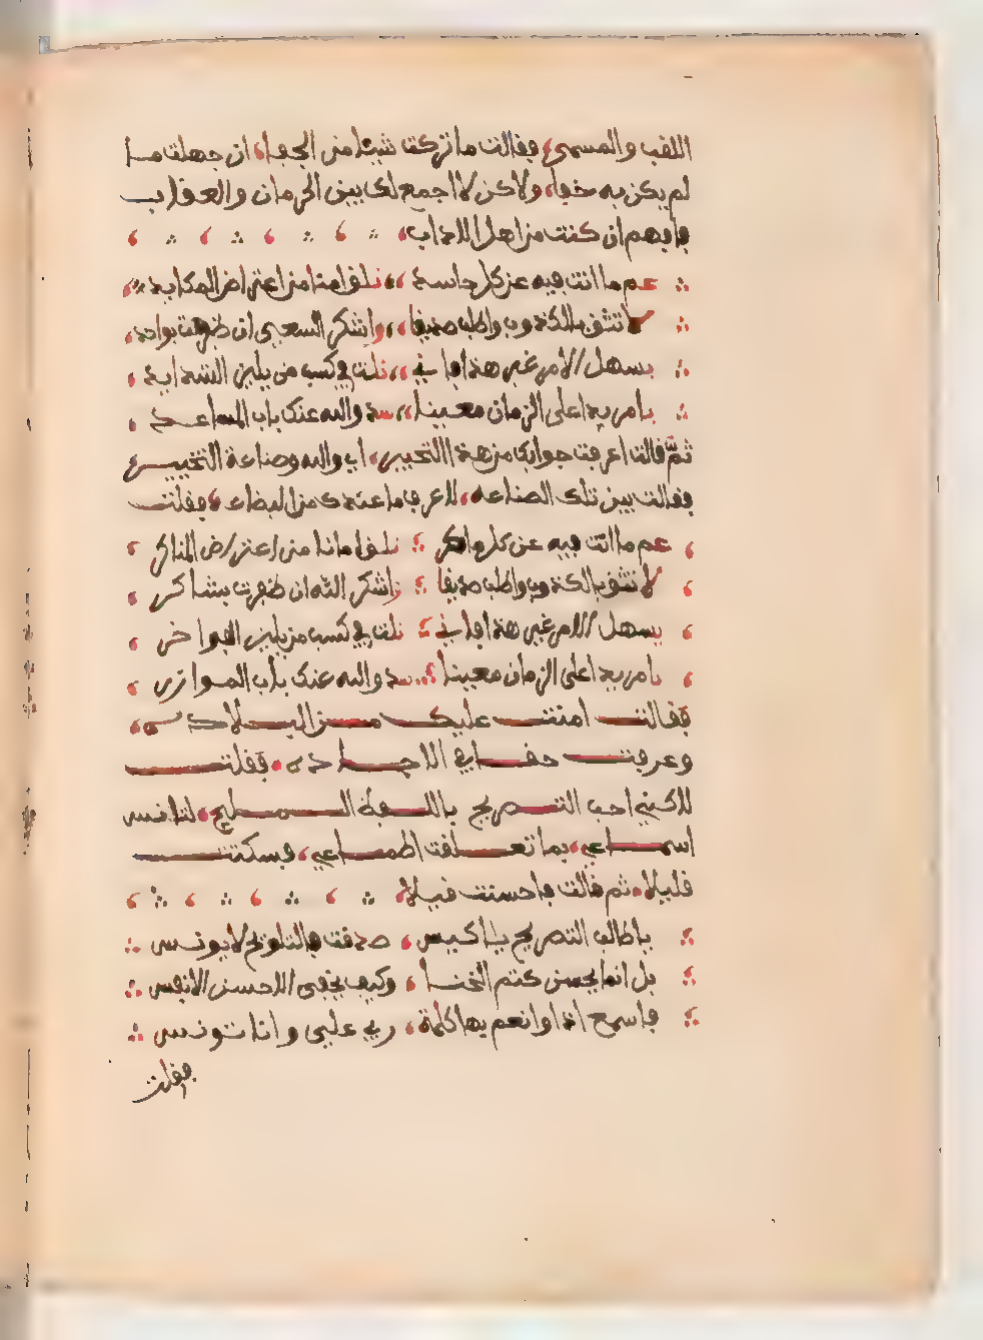 اللقب والمسمى، فقالت ما تركت شيئا من الجفاء، ان جهلت ما
لم يكن به خفاء، ولاكن لا اجمع لك بين الحرمان والعقاب
فافهم ان كنت من اهل الاداب،
عم ما انت فيه عن كل حاسد ،، تلق امنا من اعتراض المكايد
لا تثق بالكذوب واطلب صديقا ،، واشكر السعي ان ظفرت بواحد
يسهل الامر غير هذا فاني ،، نلت في كسب من يلين الشدايد
يا مريدا على الزمان معينا ،، سد والله عنك باب المساعد
ثمّ قالت اعرفت جوابك من هذا التحيير، اي والله وصناعة التخيير
فقالت بين تلك الصناعه، لاعرف ما عندك من البضاعه، فقلت
عم ما انت فيه عن كل ماكر ؛ تلق امانا من اعتراض المناكر
لا تثق بالكذوب واطلب صديقا ؛ واشكر الله ان ظفرت بشاكر
يسهل الامر غير هذا فاني ؛ نلت في كسب من يلين الفواخر
يا مريدا على الزمان معينا ؛ سد والله عنك باب الموازر
فقالت امنت عليك من البلاده،
وعرفت حقا في الاجاده، فقلت
لاكني احب التصريح باللفظ المليح، لتانس
اسماعي، بما تعلقت اطماعي، فسكتت
قليلا، ثم قالت فاحسنت قيلا،
يا طالب التصريح يا اكيس، صدقت فالتلويح لا يونس
بل انما يحسن كتم الخنا، وكيف يخفى الاحسن الانفس
فاسمع اذا وانعم بها كلمة، ربي علي وانا تونس
فقلت